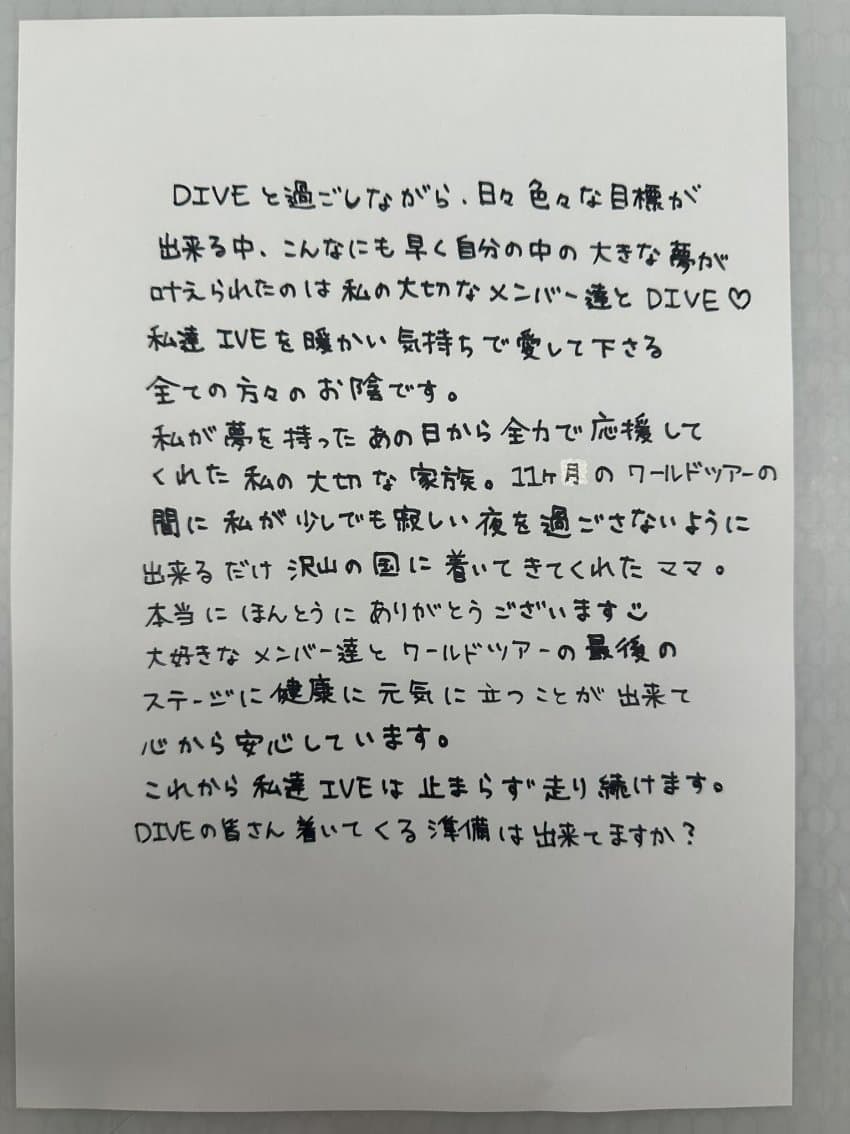 DIVEと過ごしながら、日々色々な目標が
出来る中、こんなにも早く自分の中の大きな夢が
叶えられたのは私の大切なメンバー達とDIVE♡
私達IVEを暖かい気持ちで愛して下さる
全ての方々のお陰です。
私が夢を持ったあの日から全力で応援して
くれた私の大切な家族。11ヶ月のワールドツアーの
間に私が少しでも寂しい夜を過ごさないように
出来るだけ沢山の国に着いてきてくれたママ。
本当にほんとうにありがとうございます
大好きなメンバー達とワールドツアーの最後の
ステージに健康に元気に立つことが出来て
心から安心しています。
これから私達IVEは止まらず走り続けます。
DIVEの皆さん着いてくる準備は出来てますか?